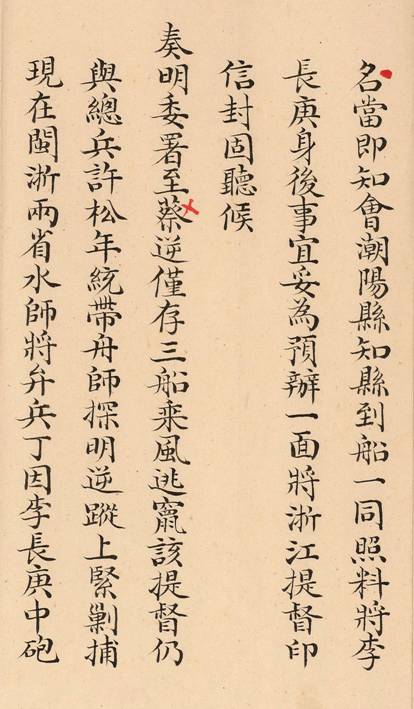 名當即知會潮陽縣知縣到船一同照料將李
長庚身後事宜妥為預辦一面將浙江提督印
信封固聽候
奏明委署至蔡逆僅存三船乘風逃竄該提督仍
與總兵許松年統帶舟師探明逆蹤上緊剿捕
現在閩浙兩省水師將弁兵丁因李長庚中砲